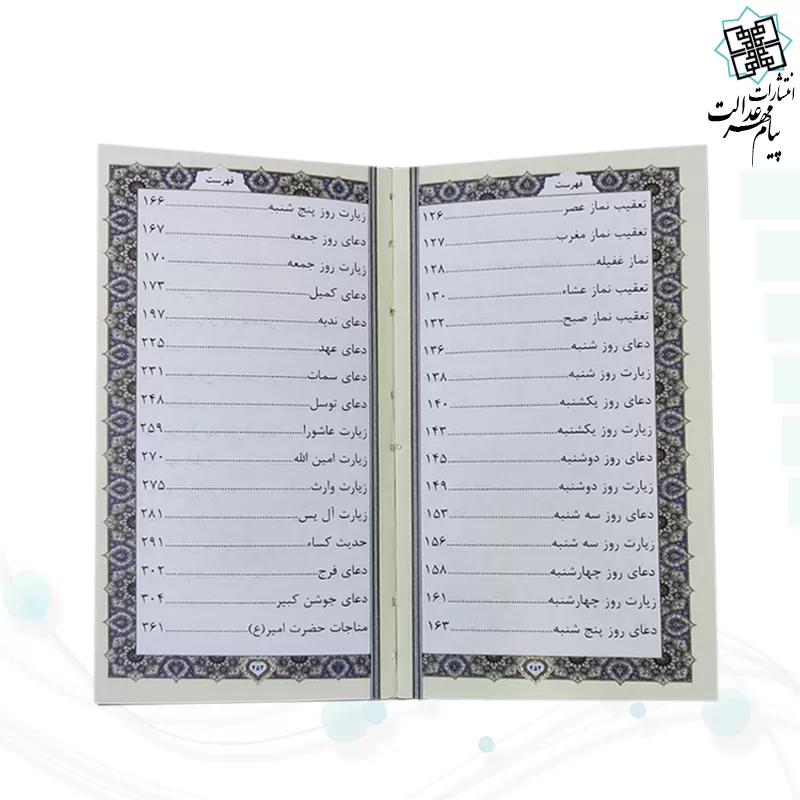 انتشارات
پیام مهر عدالت
فهرست
تعقیب نماز عصر..........۱۲۶
تعقیب نماز مغرب..........۱۲۷
نماز غفیله..........۱۲۸
تعقیب نماز عشاء..........۱۳۰
تعقیب نماز صبح..........۱۳۲
دعای روز شنبه..........۱۳۶
زیارت روز شنبه..........۱۳۸
دعای روز یکشنبه..........۱۴۰
زیارت روز یکشنبه..........۱۴۳
دعای روز دوشنبه..........۱۴۵
زیارت روز دوشنبه..........۱۴۹
دعای روز سه شنبه..........۱۵۳
زیارت روز سه شنبه..........۱۵۶
دعای روز چهارشنبه..........۱۵۸
زیارت روز چهارشنبه..........۱۶۱
دعای روز پنج شنبه..........۱۶۳
فهرست
زیارت روز پنج شنبه..........۱۶۶
دعای روز جمعه..........۱۶۷
زیارت روز جمعه..........۱۷۰
دعای کمیل..........۱۷۳
دعای ندبه..........۱۹۷
دعای عهد..........۲۲۵
دعای سمات..........۲۳۱
دعای توسل..........۲۴۸
زیارت عاشورا..........۲۵۹
زیارت امین الله..........۲۷۰
زیارت وارث..........۲۷۵
زیارت آل یس..........۲۸۱
حدیث کساء..........۲۹۱
دعای فرج..........۳۰۲
دعای جوشن کبیر..........۳۰۴
مناجات حضرت امیر(ع)..........۳۶۱